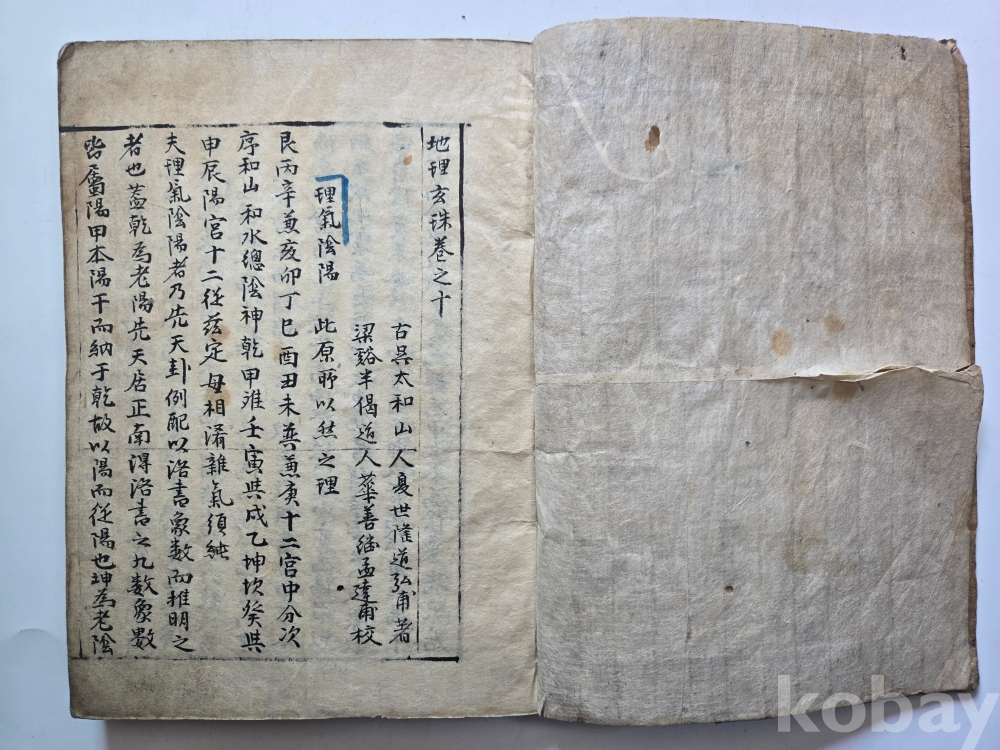 地理玄珠卷之十
古吳太和山人夏世隆道弘甫著
梁谿半偈道人華善繼孟達甫校
理氣陰陽 此原所以然之理
艮丙辛兼亥卯丁巳酉丑未共兼庚十二宮中分次
序和山和水總陰神乾甲难壬寅與戌乙坤坎癸共
申辰陽宮十二従茲定毋相淆雜氣須純
夫理氣陰陽者乃先天卦例配以洛書象数而推明之
者也蓋乾為老陽先天居正南得洛書之九数象數
皆屬陽甲本陽干而納于乾故以陽而従陽也坤為老陰
kobay